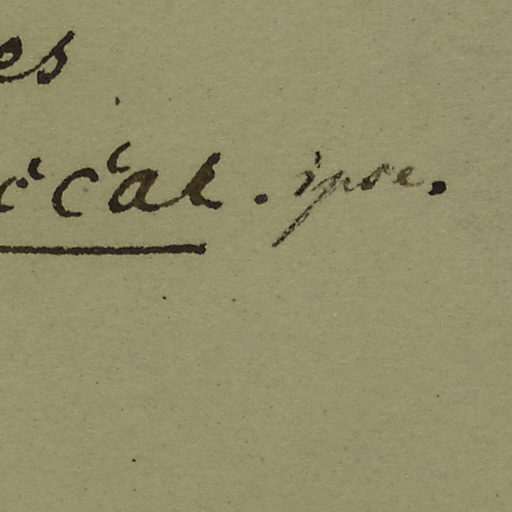 es
ccar. ipse.